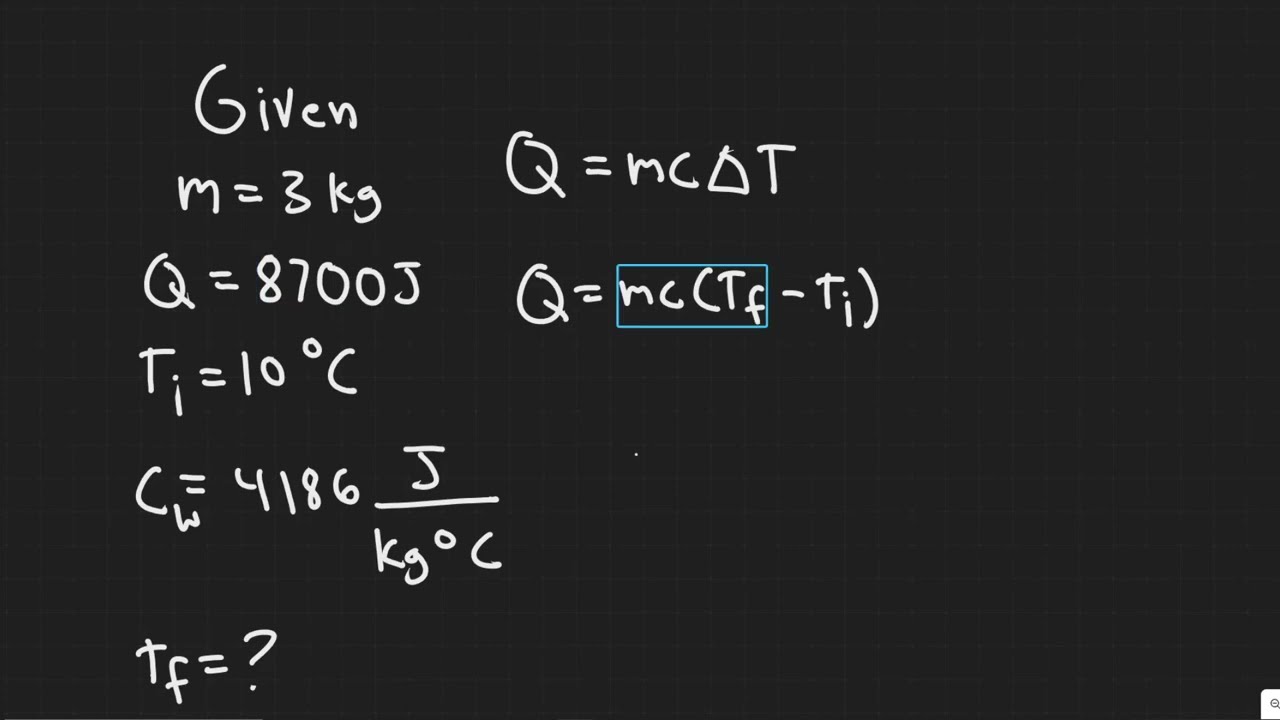 Given
m = 3 kg
Q = 8700 J
Ti = 10 °C
Cw = 4186 J / kg °C
Tf = ?
Q = mc Δ T
Q = mc (Tf - Ti)